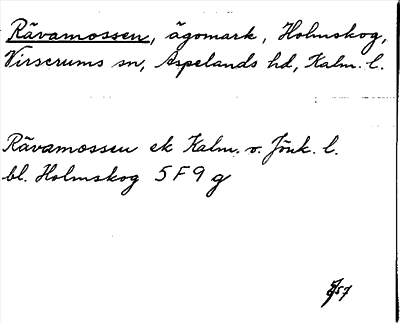 Rävamossen, ägomark, Holmskog,
Virserums sn, Aspelands hd, Kalm. l.
Rävamossen ek Kalm. o. Jönk. l.
bl. Holmskog 5 F 9 g
57